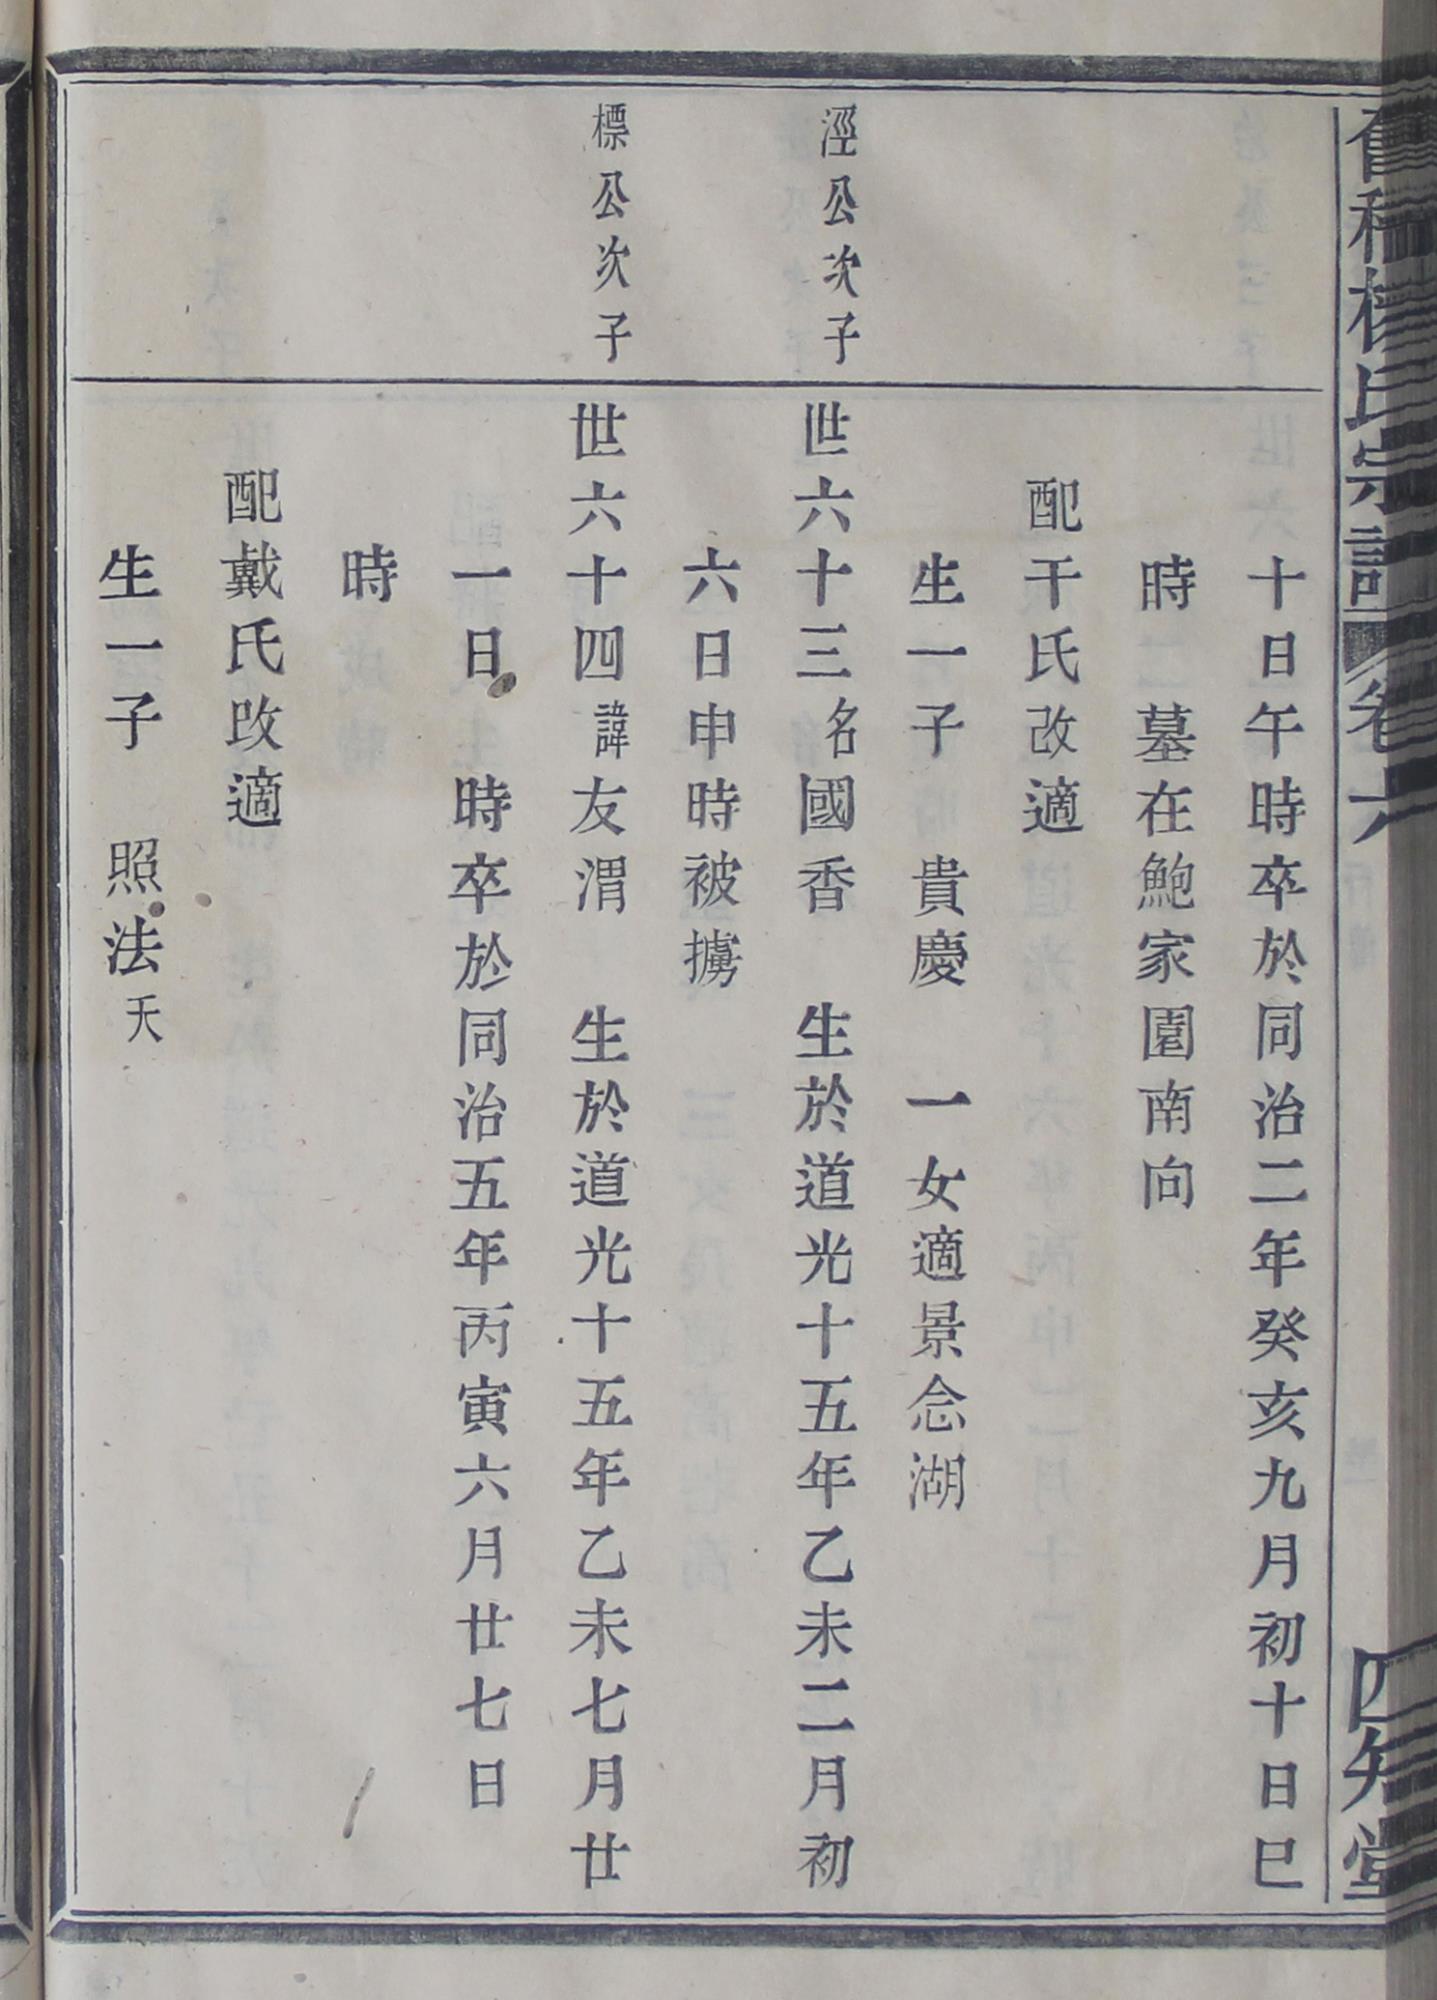 楊氏宗譜 卷六 四知堂
十日午時卒於同治二年癸亥九月初十日巳
時墓在鮑家園南向
配干氏改適
生一子 貴慶 一女適景念湖
涇公次子
世六十三名國香 生於道光十五年乙未二月初
六日申時被擄
標公次子
世六十四諱友渭 生於道光十五年乙未七月廿
一日 時卒於同治五年丙寅六月廿七日
時
配戴氏改適
生一子 照法天